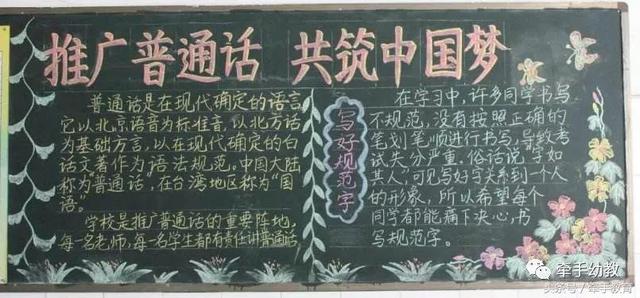 推广普通话 共筑中国梦
普通话是在现代确定的语言
它以北京语音为标准音,以北方话
为基础方言,以在现代确定的白
话文著作为语法规范。中国大陆
称为"普通话,在台湾地区称为"国
语"。
学校是推广普通话的重要阵地。
每一名老师,每一名学生都有责任讲普通话
写好规范字
在学习中,许多同学书写
不规范,没有按照正确的
笔划笔顺进行书写,导致考
试失分严重。俗话说"字如
其人",可见写好字关系到一个人
的形象,所以希望每个
同学都能痛下决心,书
写规范字。
牵手幼教
头条号/牵手教育